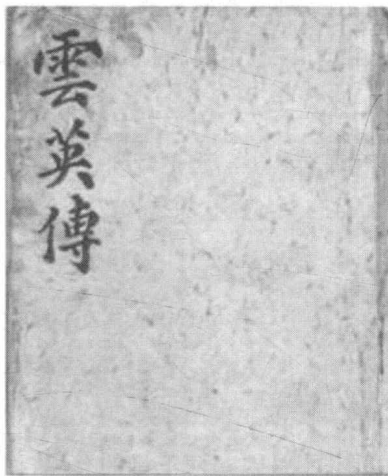 雲英傳